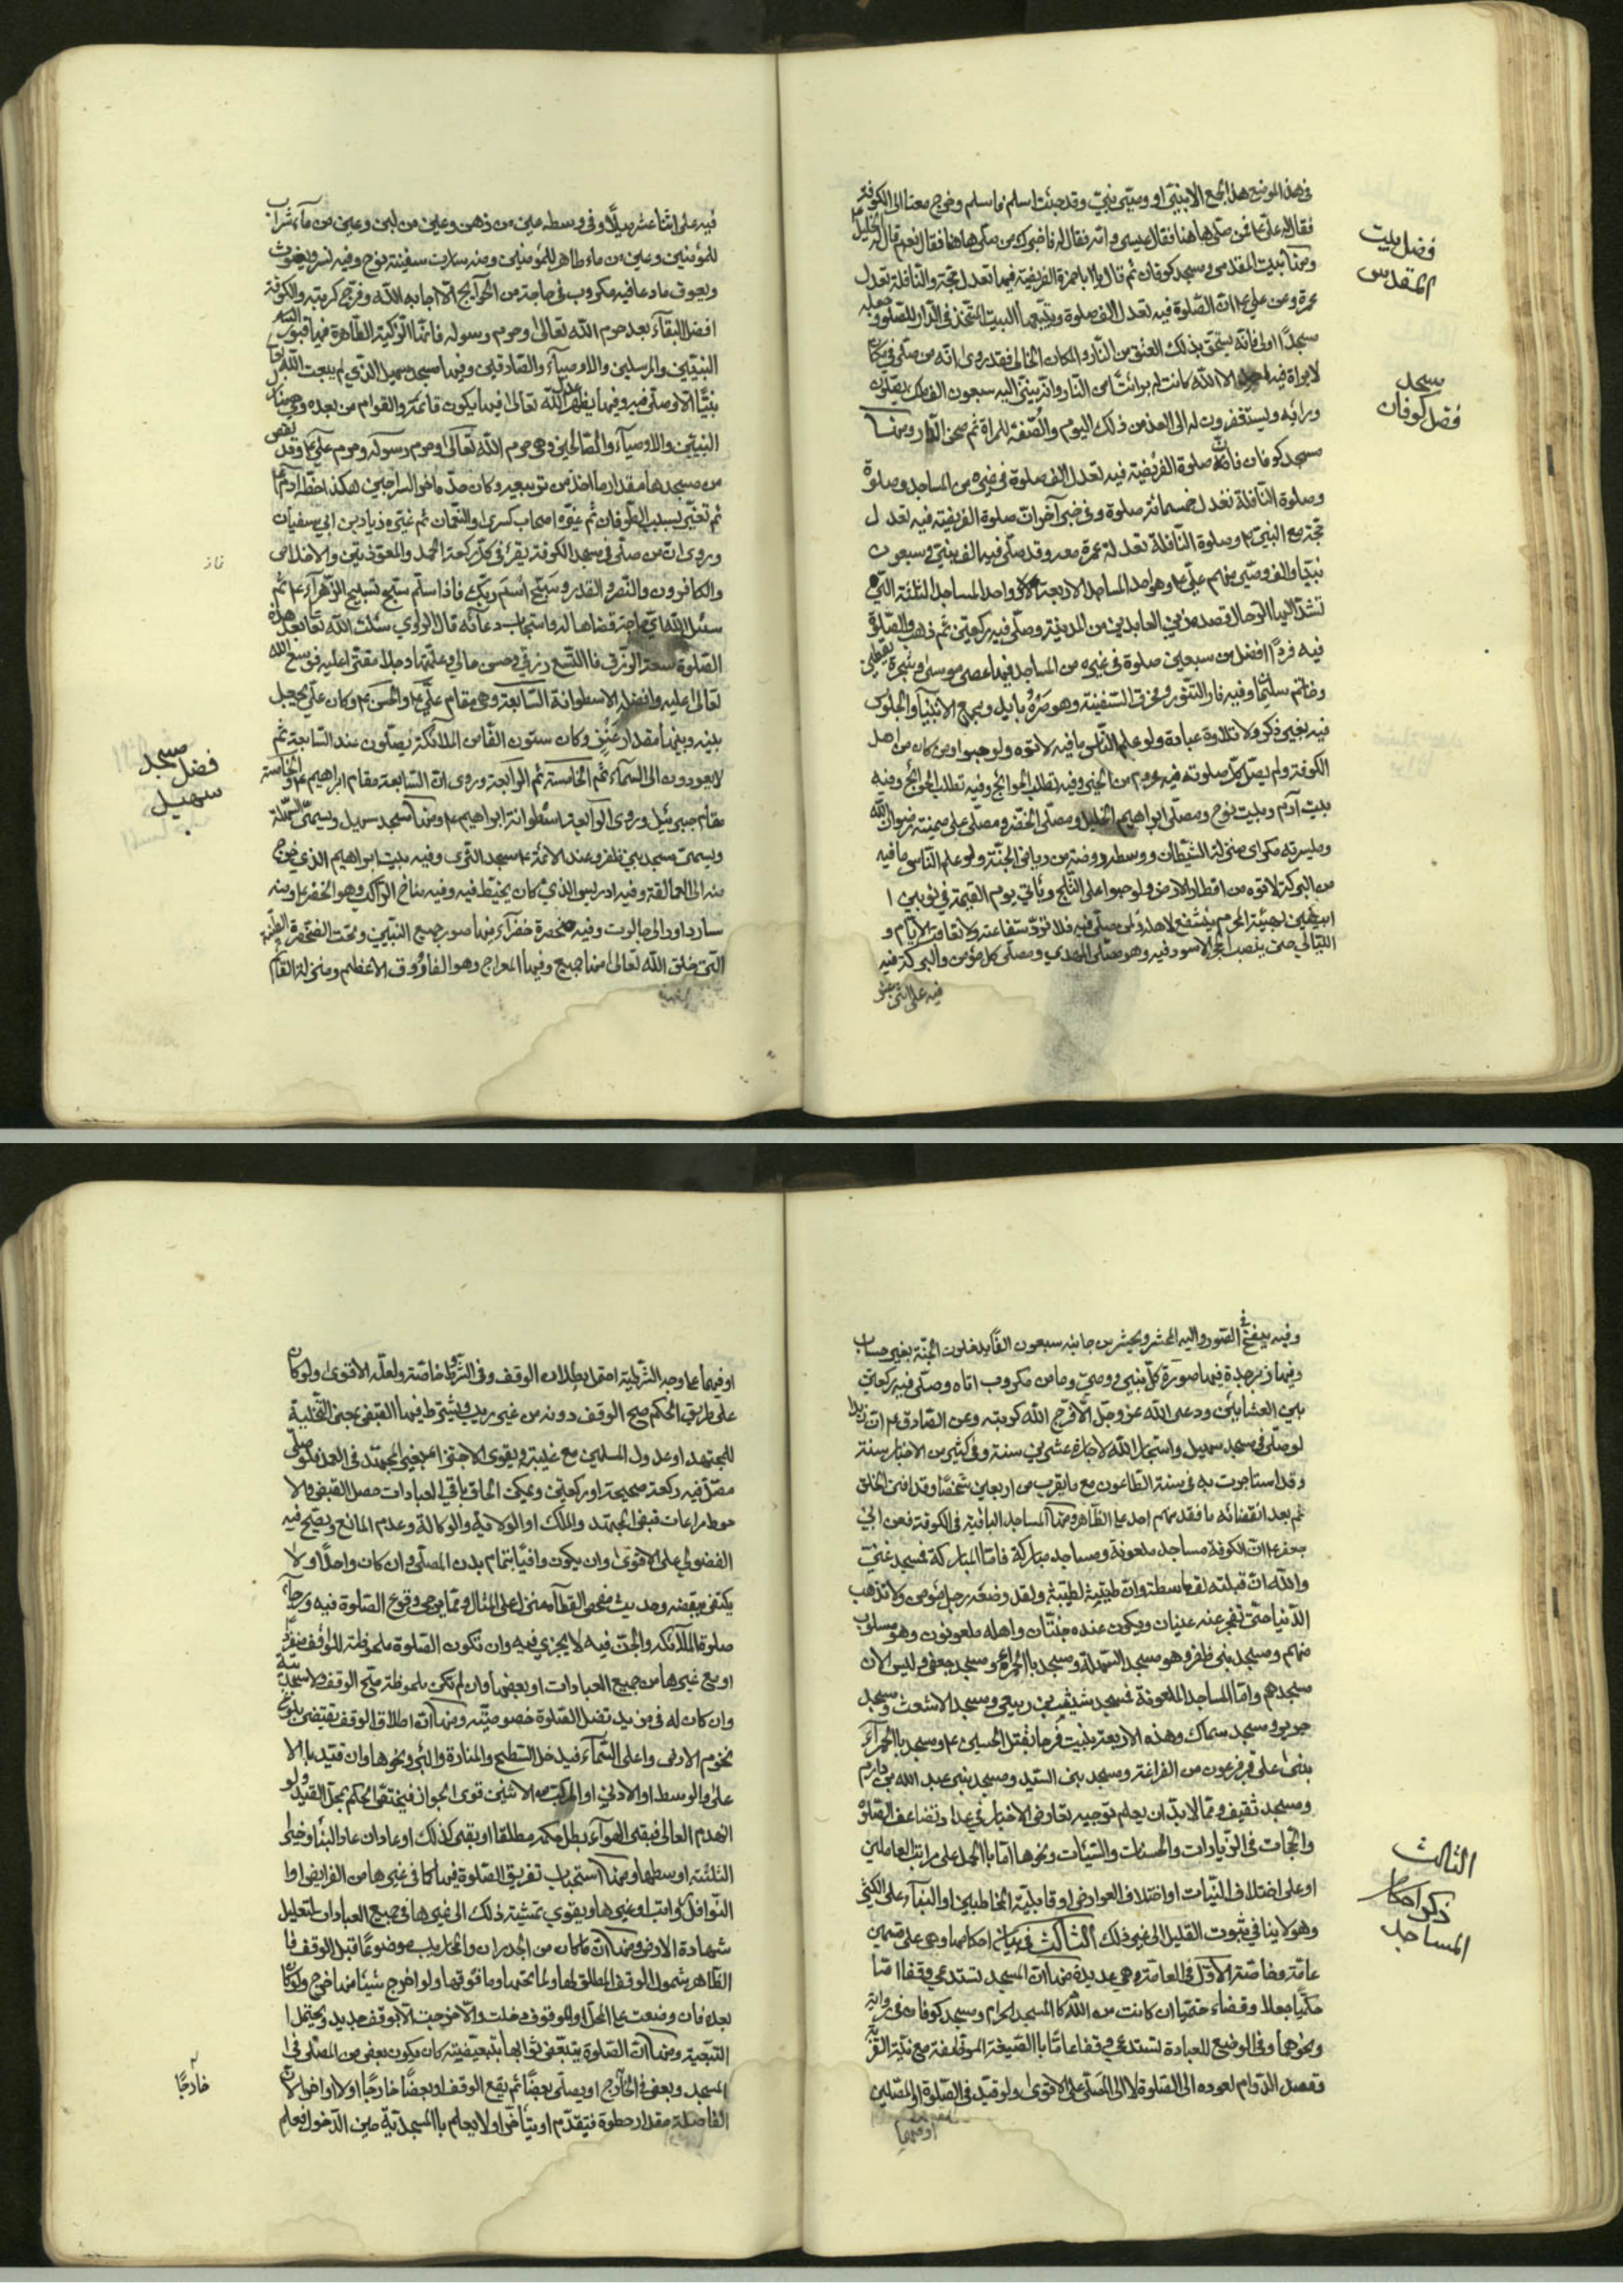 في هذا الموضع هل الجمع الا نبيّ او وصيّ نبيّ وقد جئت اسلم فاسلم وخرج معنا الى الكوفة
فقال له علي ع فمن صلّى هاهنا فقال عيسى وامّه فقال له فاخبرك من صلّى هاهنا فقال نعم قال الخليل ع
ومنها بيت المقدس ومسجد كوفان ثم قال يا ابا حمزة الفريضة فيها تعدل حجّة والنافلة تعدل
عمرة وعن علي ع انّ الصّلوة فيه تعدل الف صلوة ويتبعها البيت المتّخذ في الدار للصّلوة و جعله
مسجدًا اولى فانّه يستحق بذلك العتق من النّار والمكان الخالى فقد روى انّه من صلّى في مكان
لا يراه فيه الا الله كانت له برائة من النّار وانّه ينتهى اليه سبعون الف ملك يصلّون
ورائه ويستغفرون له الى الغد من ذلك اليوم والصّفة للمراة ثم صحن الدّار ومنها
مسجد كوفان فانّ صلوة الفريضة فيه تعدل الف صلوة في غيره من المساجد وصلوة
وصلوة النّافلة تعدل خمسمائة صلوة وفي خبر آخر انّ صلوة الفريضة فيه تعدل
حجّة مع النبيّ ص وصلوة النّافلة تعدل عمرة معه وقد صلّى فيه الف نبيّ و سبعون
نبيّا والف وصيّ منهم علي ع وهو احد المساجد الاربعة واحد المساجد الثلثة الّتي
تشدّ اليها الرّحال قصده زين العابدين من المدينة وصلّى فيه ركعتين ثم ذهب والصّلوة
فيه فردًا افضل من سبعين صلوة في غيره من المساجد فيه عصى موسى وشجرة يقطين
وخاتم سليمان وفيه فار التنّور وجرت السّفينة وهو صرّة بابل ومجمع الانبيآء والجلوس
فيه بغير ذكر ولا تلاوة عبادة ولو علم النّاس ما فيه لاتوه ولو حبوا ومن كان من اهل
الكوفة ولم يصلّ كلّ صلوته فيه محروم من الخير وفيه تطلب الحوائج وفيه
بيت آدم وبيت نوح ومصلّى ابراهيم الخليل ومصلّى الخضر ومصلّى علي ميمنته رضوان الله
وميسرته مكر اى منزلة الشيطان ووسطه روضة من رياض الجنّة ولو علم النّاس ما فيه
من البركة لاتوه من اقطار الارض ولو حبوا على الثّلج ويأتي يوم القيمة في ثوبين ا
ابيضين لهيئة المحرم يشفع لاهله ولمن صلّى فيه فلا تردّ شفاعته ولا تفات الايّام و
الليّالي حتى ينصب الحجر الاسود فيه وهو مصلّى المهدي ومصلّى كل مؤمن والبركة فيه
فضل بيت
المقدس
مسجد
فضل كوفان
فيه على اثنا عشر ميلًا وفي وسطه عين من دهن وعين من لبن وعين من مآء شراب
للمؤمنين وعين من ماء طاهر للمؤمنين ومنه سارت سفينة نوح وفيه نسر ويغوث
ويعوق ما دعا فيه مكروب في حاجة من الحوآيج الّا اجابه الله وفرّج كربته والكوفة
افضل البقاع بعد حرم الله تعالى وحرم رسوله فانّها الزكية الطّاهرة فيها قبور
النبيّين والمرسلين والاوصيآء والصّادقين وفيها مسجد سهيل الذي لم يبعث الله
نبيًّا الّا وصلّى فيه وفيها يظهر عدل الله تعالى وفيها يكون قائمه والقوام من بعده وهي منازل
النبيّين والاوصيآء والصّالحين وهي حرم الله تعالى وحرم رسوله وحرم علي ع وقد نقص
ثم تغيّر بسبب الطّوفان ثم غيّره اصحاب كسرى والنّعمان ثم غيّره زياد بن ابي سفيان
وروى انّ من صلّى في مسجد الكوفة يقرء في كلّ ركعة الحمد والمعوّذتين والاخلاص
والكافرون والنّصر والقدر وسبّح اسم ربّك فاذا سلّم سبّح تسبيح الزّهرآء ع ثم
سئل الله ايّ حاجة قضاها له واستجاب دعائه قال الراوي سئلت الله تعالى بعد هذه
الصّلوة سعة الرّزق فاتّسع رزقي وحسن حالي وعلّمتها رجلا مقترا عليه فوسّع الله
تعالى عليه وافضله الاسطوانة السّابعة وهي مقام علي ع والحسن ع وكان علي يجعل
بينه وبينها مقدار عنز وكان ستون الفًا من الملائكة يصلّون عند السّابعة ثم
لا يعودون الى السمآء ثم الخامسة ثم الرابعة وروى انّ السّابعة مقام ابراهيم ع والخامسة
مقام جبرئيل وروى الرابعة اسطوانة ابراهيم ع ومنها مسجد سهيل ويسمّى السّهلة
ويسمّى مسجد بني ظفر وعند الائمة ع مسجد الثرى وفيه بيت ابراهيم الذي خرج
منه الى العمالقة وفيه ادريس الذي كان يخيّط فيه وفيه مناخ الراكب وهو الخضر ع ومنه
سار داود الى جالوت وفيه صخرة خضرآء فيها صور جميع النبيين وتحت الصّخرة الطّينة
التي خلق الله تعالى منها جميع وفيها المعراج وهو الفاروق الاعظم ومنزلة القائم
فضل مسجد
سهيل
وفيه ينفخ في الصّور واليه المحشر ويحشر من جانبه سبعون الفًا يدخلون الجنّة بغير حساب
وفيها زبرجدة فيها صورة كلّ نبيّ ووصيّ وما من مكروب اتاه وصلّى فيه ركعتين
بين العشائين ودعى الله عزّ وجلّ الّا فرّج الله كربته وعن الصّادق ع انّ زيدا
لو صلّى في مسجد سهيل واستجار الله لاجاره عشرين سنة وفي كثير من الاخبار سنة
وقد استاجرت به في سنة الطّاعون مع ما يقرب من اربعين شخصًا وقد افنى الخلق
ثم بعد انقضائه ما فقد منهم احد على الظّاهر ومنها المساجد الباقية في الكوفة فعن ابي
جعفر ع انّ الكوفة مساجد ملعونة ومساجد مباركة فامّا المباركة فمسجد غني
والله انّ قبلته لقاسطة وانّ طينته لطيّبة ولقد وضعه رجل مؤمن ولا تذهب
الدّنيا حتّى تفجر عنه عينان ويكون عنده جنّتان واهله ملعونون وهو مسلوب
منهم ومسجد بني ظفر وهو مسجد السّهلة ومسجد بالحمرآء ومسجد جعفي وليس الان
مسجدهم وامّا المساجد الملعونة فمسجد شبث بن ربعي ومسجد الاشعث ومسجد
جرير ومسجد سماك وهذه الاربعة بنيت فرحا بقتل الحسين ع ومسجد بالحمرآء
بنى على قبر فرعون من الفراعنة ومسجد بني السّيد ومسجد بني عبد الله بن دارم
ومسجد ثقيف وممّا لا بدّ ان يعلم توجيه تعارض الاخبار في عداد تضاعف الصّلوة
والحجّات في الزّيارات والحسنات والسّيئات ونحوها امّا بالحمل على مراتب العاملين
او على اختلاف النّيات او اختلاف العوارض او قابليّة المخاطبين او البنآء على الكثير
وهو لا ينافي ثبوت القليل الى غير ذلك الثالث في بيان احكامها وهي على قسمين
عامّة وخاصّة الاوّل في العامّة وهي عديدة منها انّ المسجد يستدعي وقفا امّا
حكميّا بجعل وقضاء حتميّا ان كانت من الله كالمسجد الحرام ومسجد كوفان في رواية
ونحوهما وفي الوضع للعبادة تستدعي وقفا عامّا بالصّيغة المؤلّفة مع نيّة القربة
وقصد الدّوام لعوده الى الصّلوة لا الى المصلّي على الاقوى ولو قيّد في الصّلوة او المصلّين
او فيهما
الثالث
ذكر احكام
المساجد
او فيهما على وجه الشّرطيّة احتمل بطلان الوقف وفي الشّرط خاصّة ولعلّه الاقوى ولو كان
على طريق الحكم صحّ الوقف دونه من غير ريب ويشترط فيها القبض بمعنى التّخلية
للمجتهد او عدول المسلمين مع غيبته ويقوى الاجتزاء بغير المجتهد في العدد فلو صلّى
مصلّ فيه ركعة صحيحة او ركعتين ويمكن الحاق باقي العبادات حصل القبض والا
حوط مراعات قبض المجتهد والملك او الولاية والوكالة وعدم المانع ويصحّ فيه
الفضولي على الاقوى وان يكون وافيًا بتمام بدن المصلّي وان كان واحدًا ولا
يكتفي ببعضه وحديث مفحص القطاة منزل على المثال وممّا يرجى وقوع الصّلوة فيه ورجآء
صلوة الملائكة والجنّ فيه لا يجزي فيه وان تكون الصّلوة ملحوظة للواقف منفردة
او مع غيرها من جميع العبادات او بعضها وان لم تكن ملحوظة صحّ الوقف ولا مسجديّة
وان كان له في مزيد فضل الصّلوة خصوصيّة ومنها انّ اطلاق الوقف يقتضي بلوغ
تخوم الارض واعلى السّمآء فيدخل السّطح والمنارة والبئر ونحوها وان قيّد بالا
على والوسط او الادنى او المركّب من الاثنين قوى الجواز فيختصّ الحكم بمحلّ القيد ولو
انهدم العالى فبقى الهوآء بطل حكمه مطلقا او بقى كذلك او عاد ان عاد البنآء وخير
الثلثة اوسطها ومنها استحباب تفريق الصّلوة فيها كما في غيرها من الفرايض او ا
النّوافل رواتب او غيرها ويقوي تمشية ذلك الى غيرها في جميع العبادات لتعليل
شهادة الارض ومنها انّ ما كان من الجدران والمحاريب موضوعًا قبل الوقف فا
الظّاهر شمول الوقف المطلق لها ولما تحتها وما فوقها ولو اخرج شيئا منها خرج ولو كان
بعده فان وضعت على المحلّ الموقوف دخلت والّا خرجت الّا بوقف جديد ويحتمل ا
التّبعيّة ومنها انّ الصّلوة يتبعّض ثوابها بتبعيضيّته كان يكون بعض من المصلّي في ا
المسجد وبعض في الخارج او يصلّي بعضًا ثم يقع الوقف او بعضًا خارجًا اولا او اخرا لانّ
الفاصلة مقدار خطوة فيتقدّم او يتأخّر او لا يعلم بالمسجديّة حين الدّخول فعلم
خارجًا